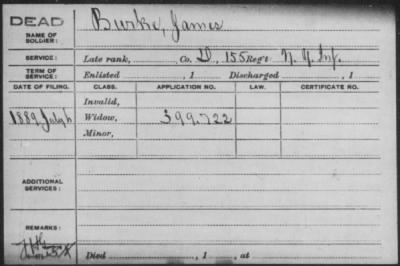 DEAD
NAME OF SOLDIER: Burke, James
SERVICE: Late rank, Co. D, 155 Reg't N. Y. Inf.
TERM OF SERVICE: Enlisted , 1 Discharged , 1
DATE OF FILING. CLASS. APPLICATION NO. LAW. CERTIFICATE NO.
Invalid,
1889 July 6 Widow, 399.722
Minor,
ADDITIONAL SERVICES:
REMARKS:
Died , 1 , at